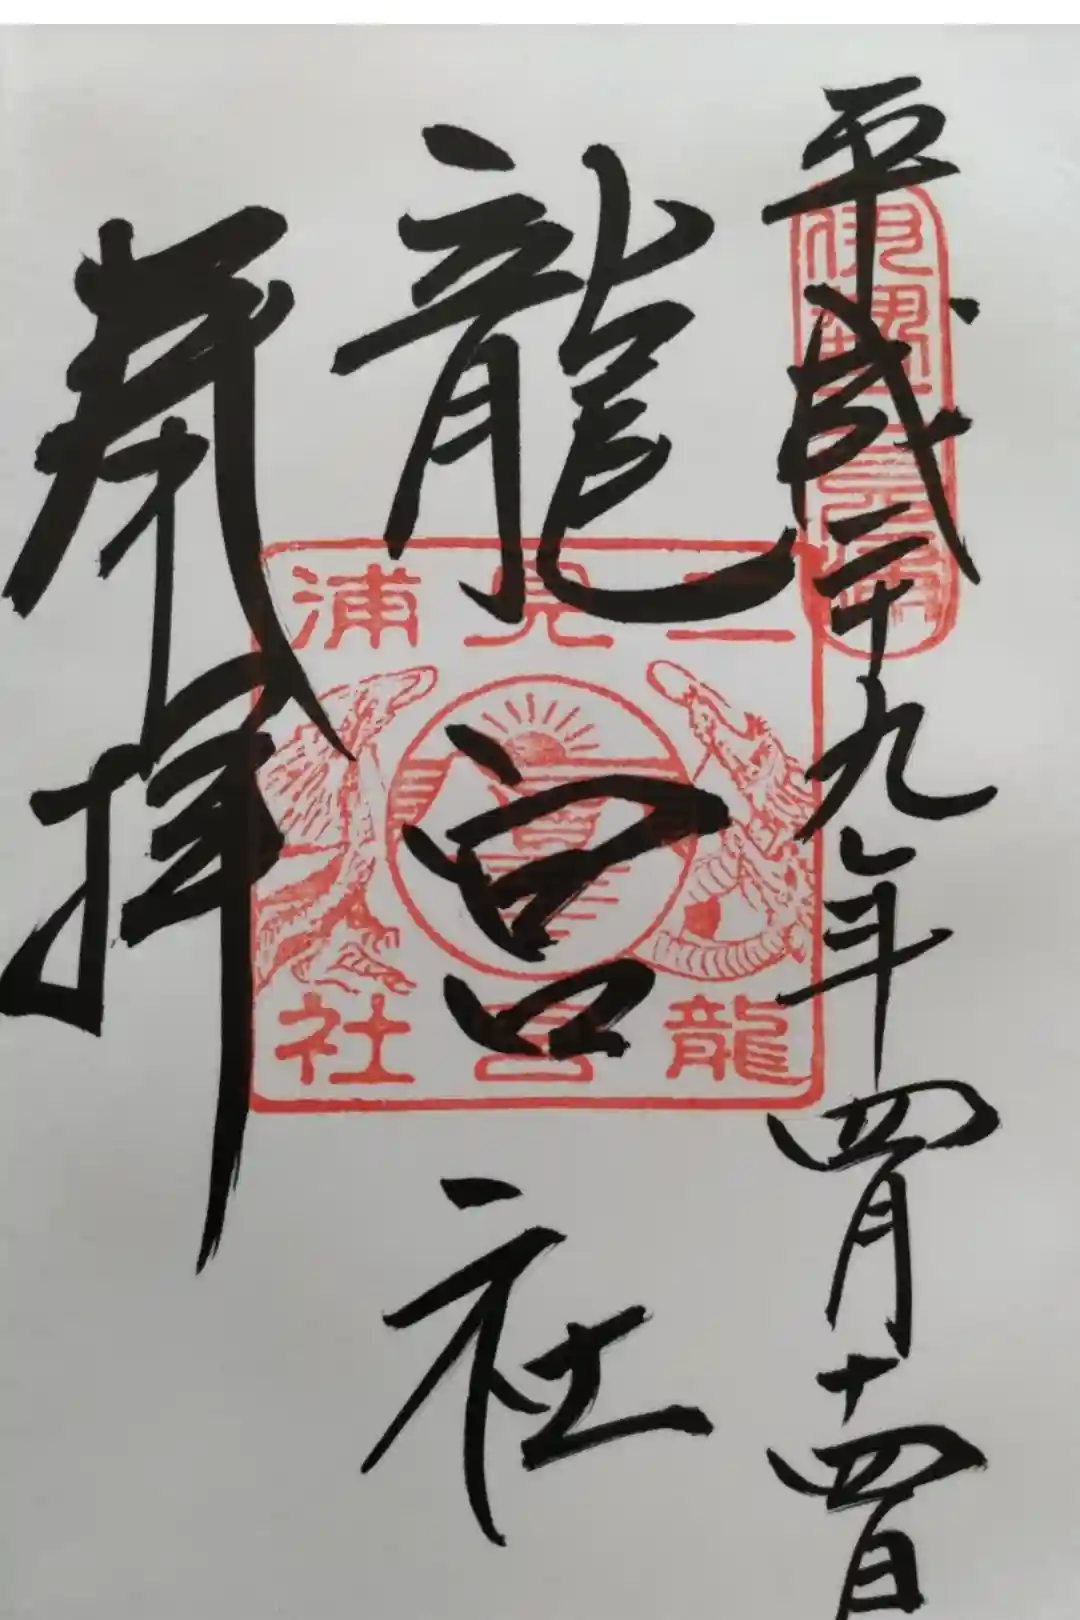 平成二十九年四月十四日
龍宮社
奉拝
伊勢二見浦
二見浦
龍宮社